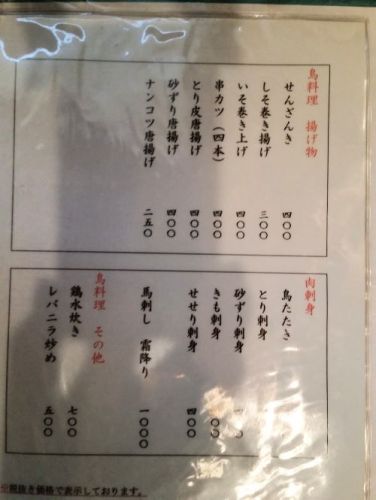 鳥料理 揚げ物
せんざんき 四〇〇
しそ巻き揚げ 三〇〇
いそ巻き上げ 四〇〇
串カツ(四本) 四〇〇
とり皮唐揚げ 四〇〇
砂ずり唐揚げ 四〇〇
ナンコツ唐揚げ 二五〇
肉刺身
鳥たたき
とり刺身
砂ずり刺身
きも刺身
せせり刺身 四〇〇
馬刺し 霜降り 一〇〇〇
鳥料理 その他
鶏水炊き 七〇〇
レバニラ炒め 五〇〇
※税抜き価格で表示しております。